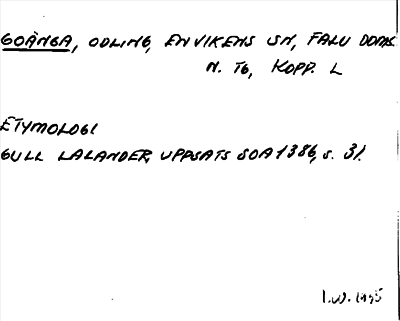 GOÄNGA, ODLING, ENVIKENS SN, FALU DOMS.
N. TG, KOPP. L
ETYMOLOGI
GULL LALANDER, UPPSATS SOA 1386, s. 31.
I.W. 1995